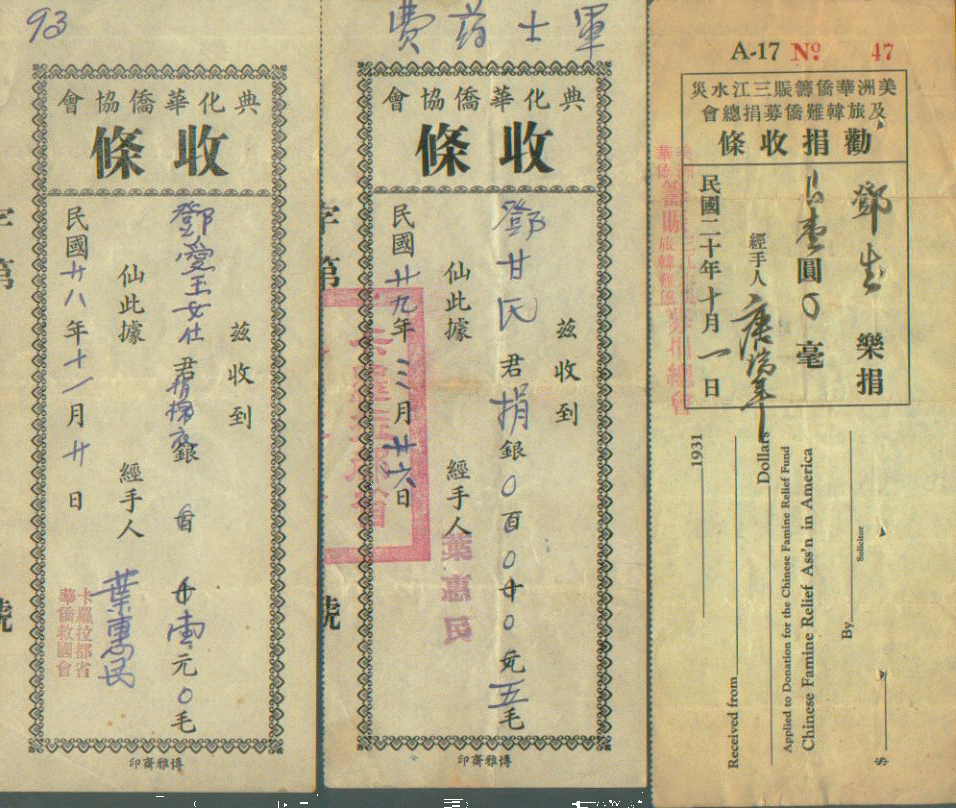 93
典化華僑協會
收條
茲收到
鄧愛玉女仕君捐棉衣銀 百 十壹元0毛
仙此據 經手人 葉惠民
民國廿八年十一月廿日
卡羅拉都省
華僑救國會
字第 號
博雅齋印
軍士葯費
典化華僑協會
收條
茲收到
鄧甘氏君捐銀0百00十0元五毛
仙此據 經手人 葉惠民
民國廿九年三月廿六日
字第 號
博雅齋印
A-17 Nº 47
美洲華僑籌賑三江水災
及旅韓難僑募捐總會
勸捐收條
鄧生 樂捐
壹圓0毫
經手人
民國二十年十月一日
1931
Received from
Dollars
Applied to Donation for the Chinese Famine Relief Fund
Chinese Famine Relief Ass'n in America
By
Solicitor
$